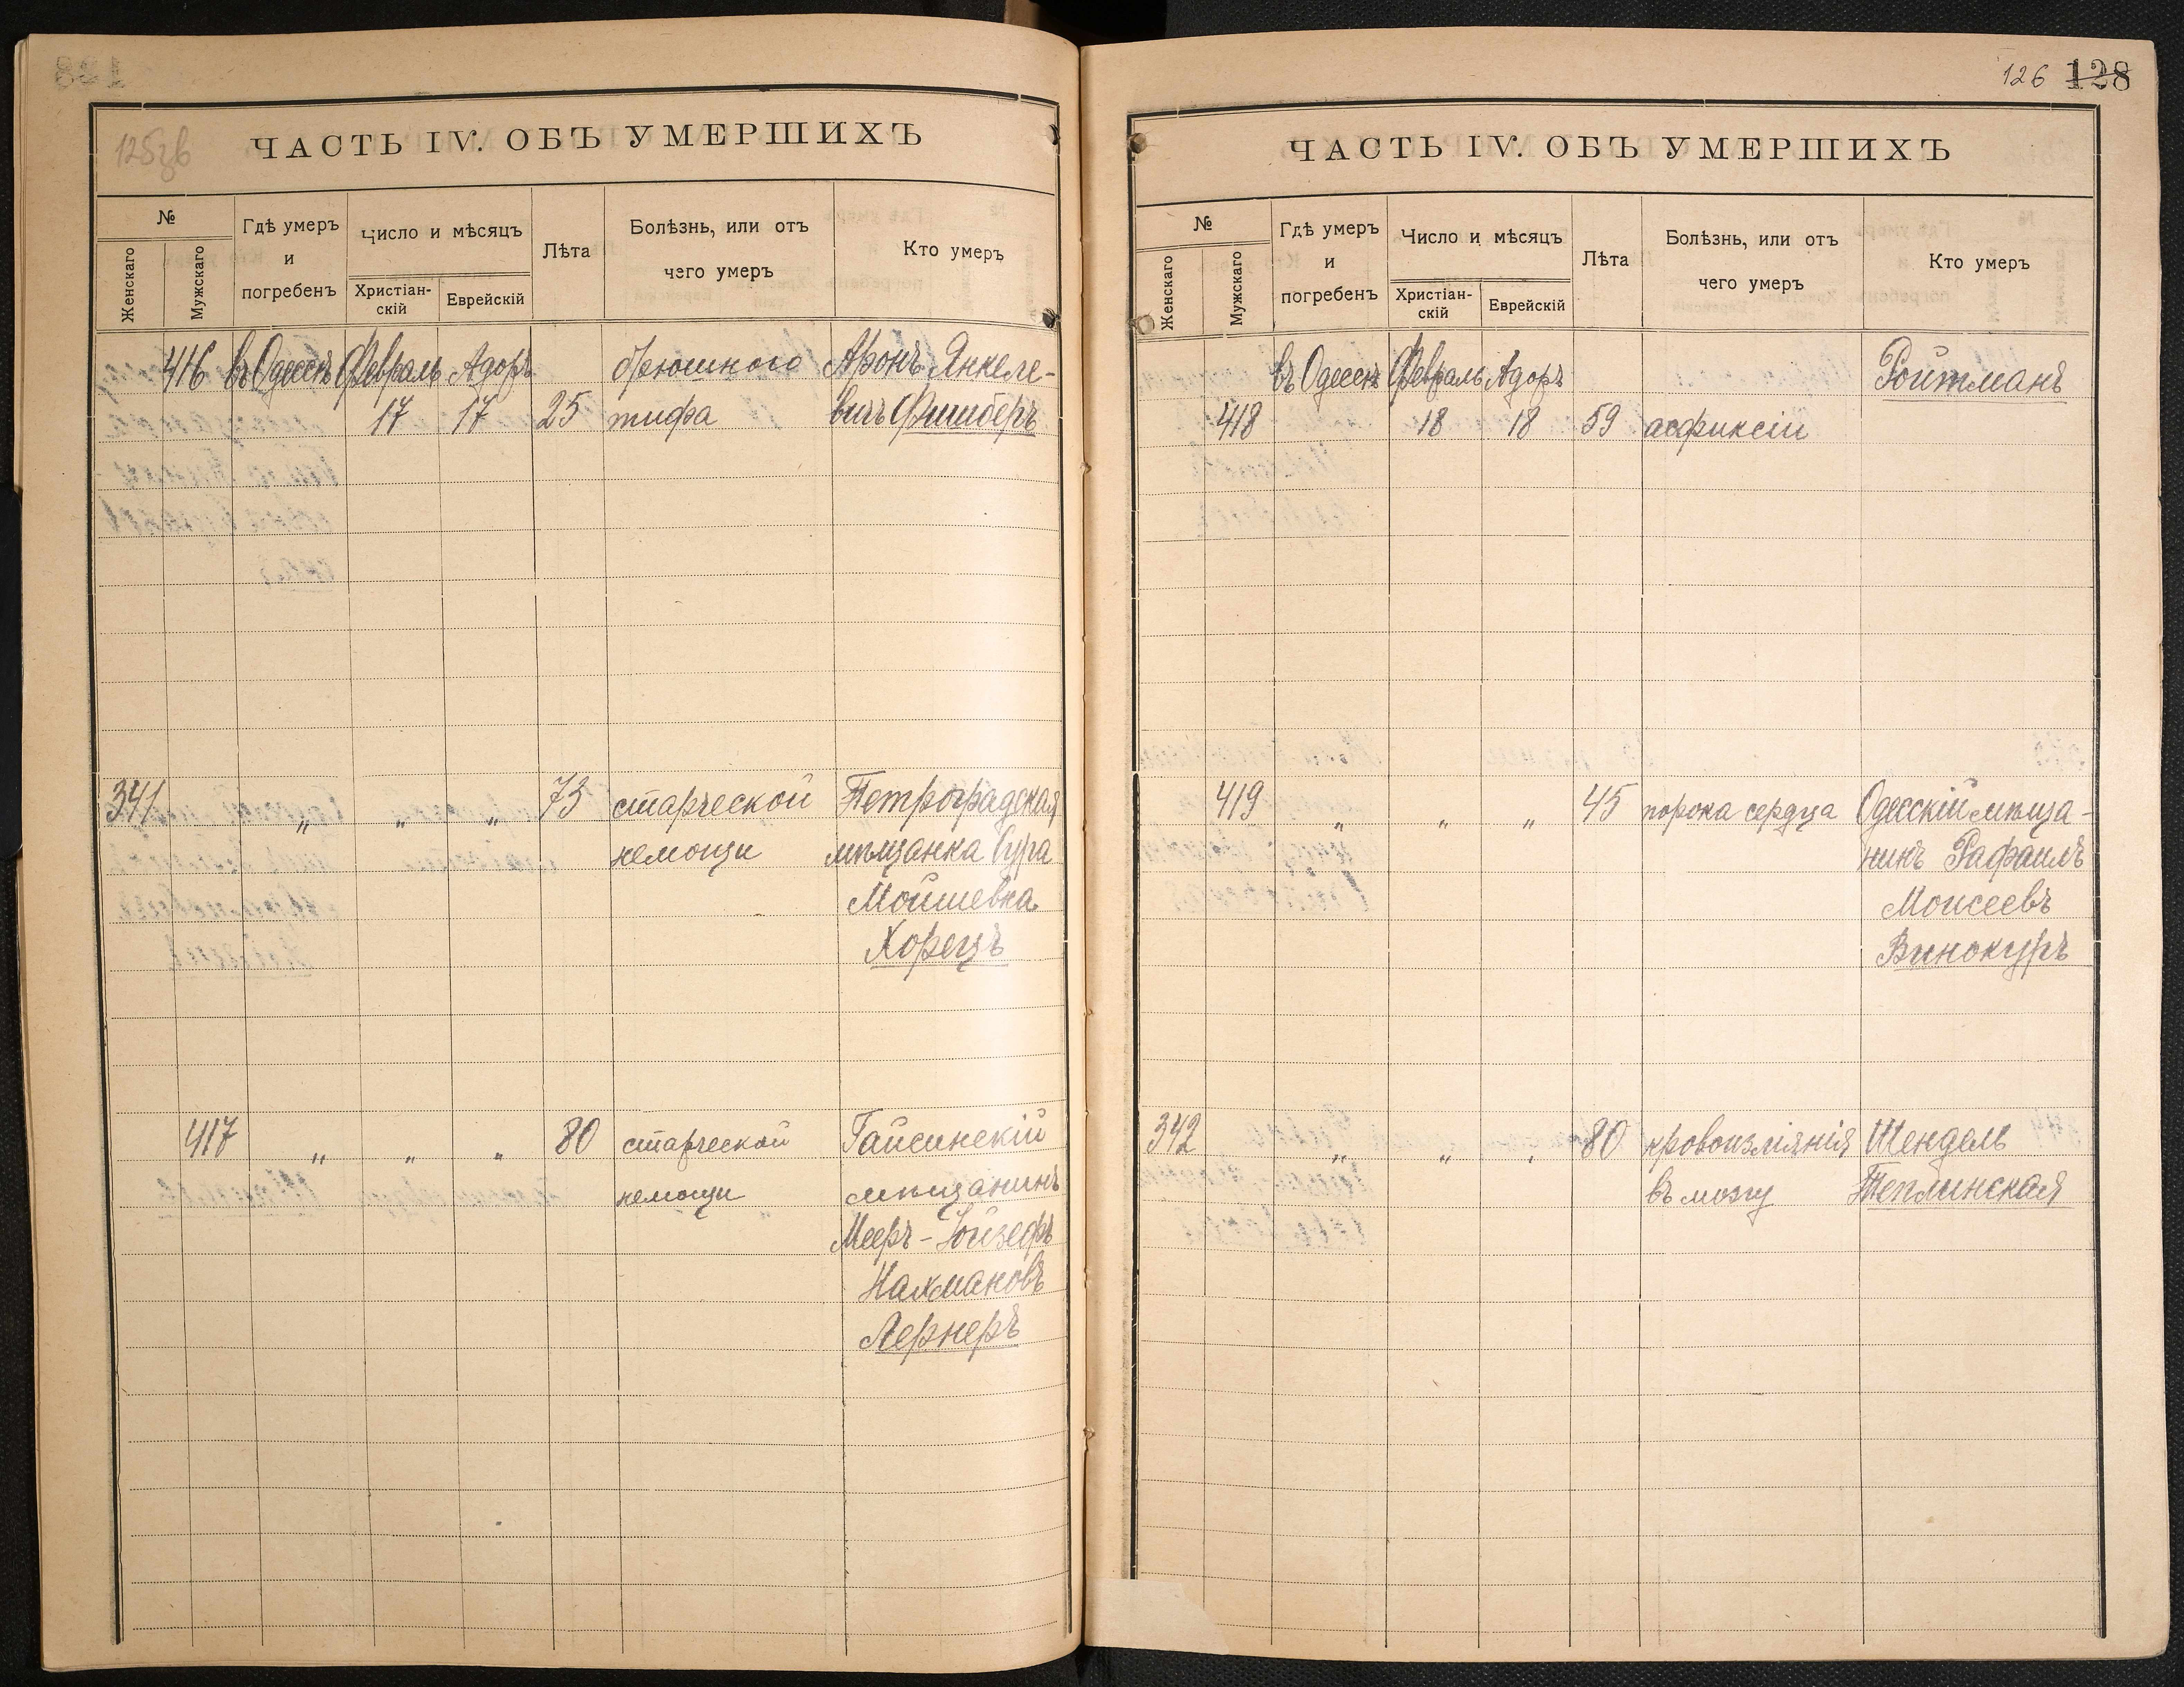 125зв
ЧАСТЬ IV. ОБЪ УМЕРШИХЪ
№
Женскаго
Мужскаго
Гдѣ умеръ
и
погребенъ
Число и мѣсяцъ
Христіан-
скій
Еврейскій
Лѣта
Болѣзнь, или отъ
чего умеръ
Кто умеръ
416 въ Одессѣ Февраль Адоръ брюшного Аронъ Янкеле-
17 17 25 тифа вичъ Фишберъ
341 " " " 73 старческой Петроградская
немощи мѣщанка Сура
Мойшевна
Хорецъ
417 " " " 80 старческой Гайсинскій
немощи мѣщанинъ
Мееръ-Йойзефъ
Нахмановъ
Лернеръ
126 128
ЧАСТЬ IV. ОБЪ УМЕРШИХЪ
№
Женскаго
Мужскаго
Гдѣ умеръ
и
погребенъ
Число и мѣсяцъ
Христіан-
скій
Еврейскій
Лѣта
Болѣзнь, или отъ
чего умеръ
Кто умеръ
въ Одессѣ Февраль Адоръ Ройтманъ
418 18 18 59 асфиксіи
419 " " " 45 порока сердца Одесскій мѣща-
нинъ Рафаилъ
Моисеевъ
Винокуръ
342 " " " 80 кровоизліянія Шендель
въ мозгу Теплинская